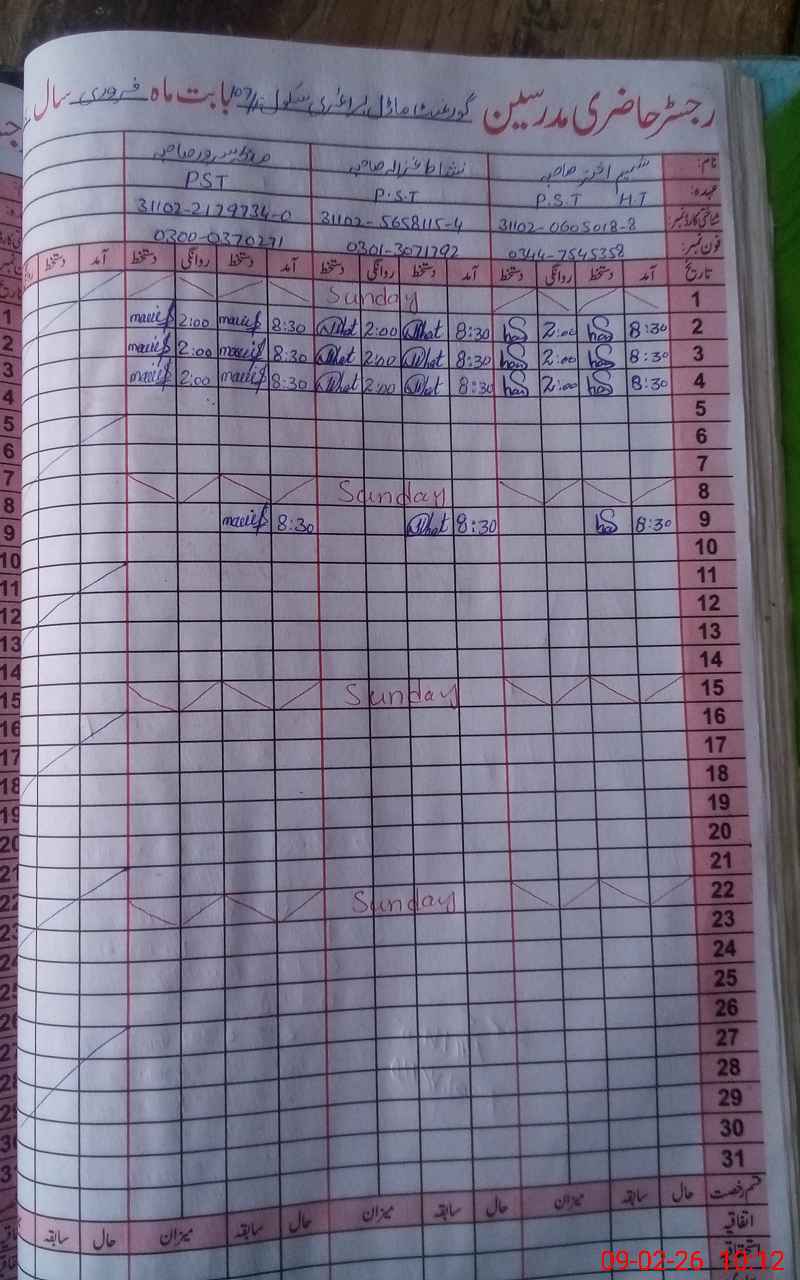 رجسٹر حاضری مدرسین گورنمنٹ ماڈل پرائمری سکول بابت ماہ فروری سال
نام: شمیم اختر صاحبہ نشاط غزالہ صاحبہ سرور صاحبہ
عہدہ: P.S.T H.T P.S.T PST
شناختی کارڈ نمبر: 31102-0605018-8 31102-5658115-4 31102-2179734-0
فون نمبر: 0344-7545358 0301-3071792 0300-0370271
تاریخ آمد دستخط روانگی دستخط آمد دستخط روانگی دستخط آمد دستخط روانگی دستخط آمد دستخط
1 Sunday
2 8:30 2:00 8:30 2:00 8:30 2:00
3 8:30 2:00 8:30 2:00 8:30 2:00
4 8:30 2:00 8:30 2:00 8:30 2:00
5
6
7
8 Sunday
9 8:30 8:30 8:30
10
11
12
13
14
15 Sunday
16
17
18
19
20
21
22 Sunday
23
24
25
26
27
28
29
30
31
قسم رخصت حال سابقہ میزان حال سابقہ میزان حال سابقہ میزان حال سابقہ
اتفاقیہ
استحقاقیہ
09-02-26 10:12